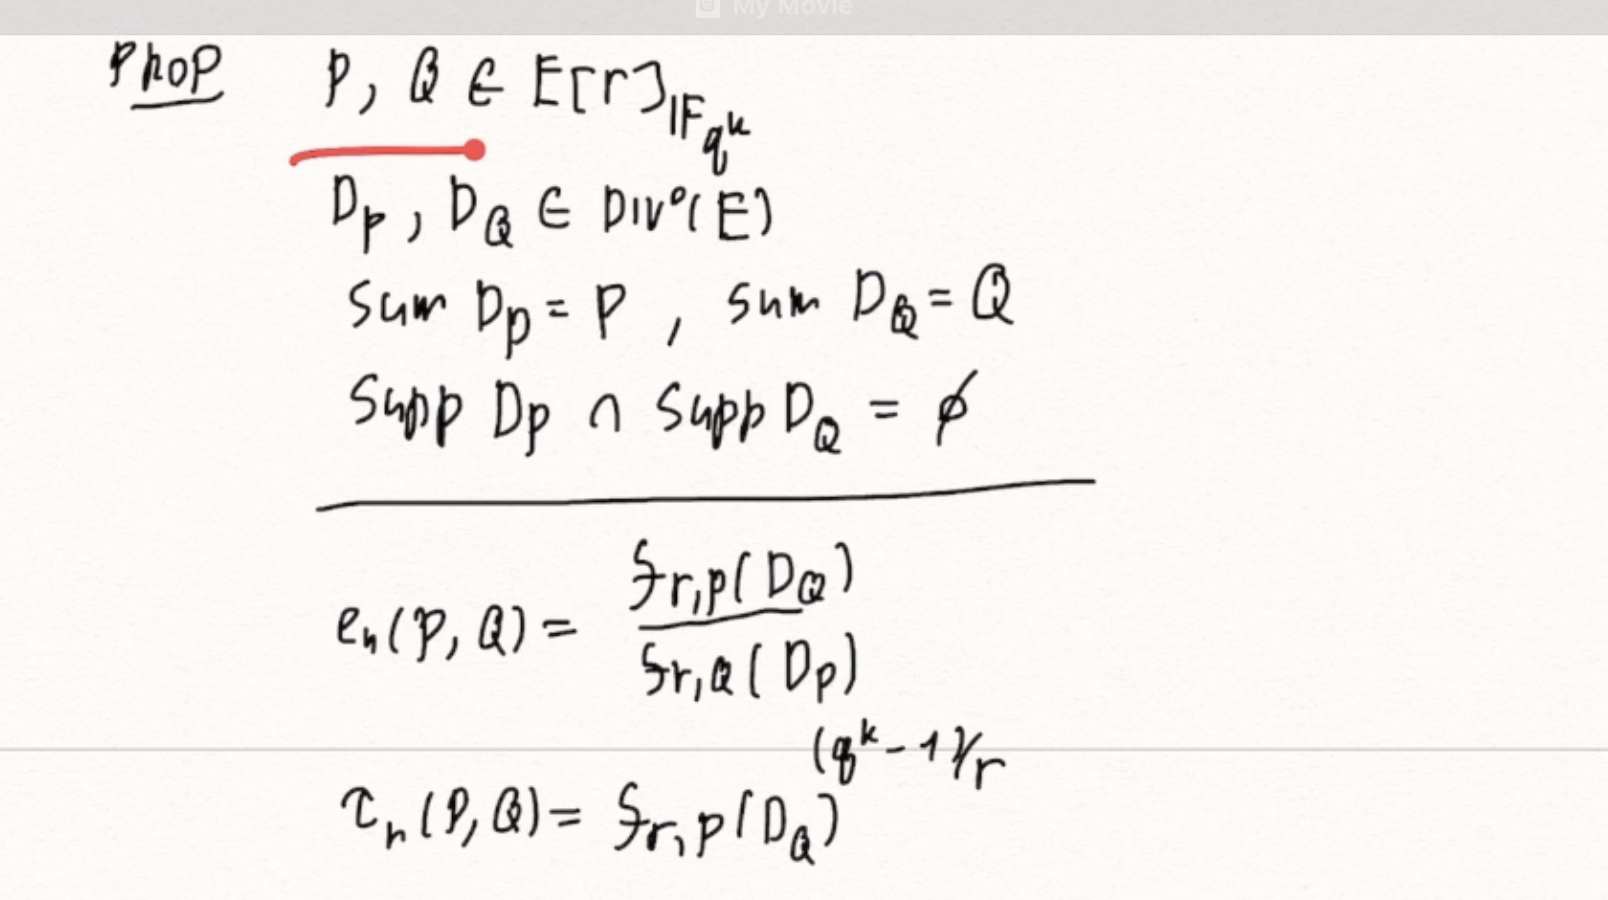 My Movie
Prop P, Q ∈ E[r]_{𝔽_{q^k}}
D_P, D_Q ∈ Div⁰(E)
sum D_P = P, sum D_Q = Q
Supp D_P ∩ Supp D_Q = ∅
e_r(P, Q) = f_{r,P}(D_Q) / f_{r,Q}(D_P)
τ_r(P, Q) = f_{r,P}(D_Q)^{(q^k-1)/r}